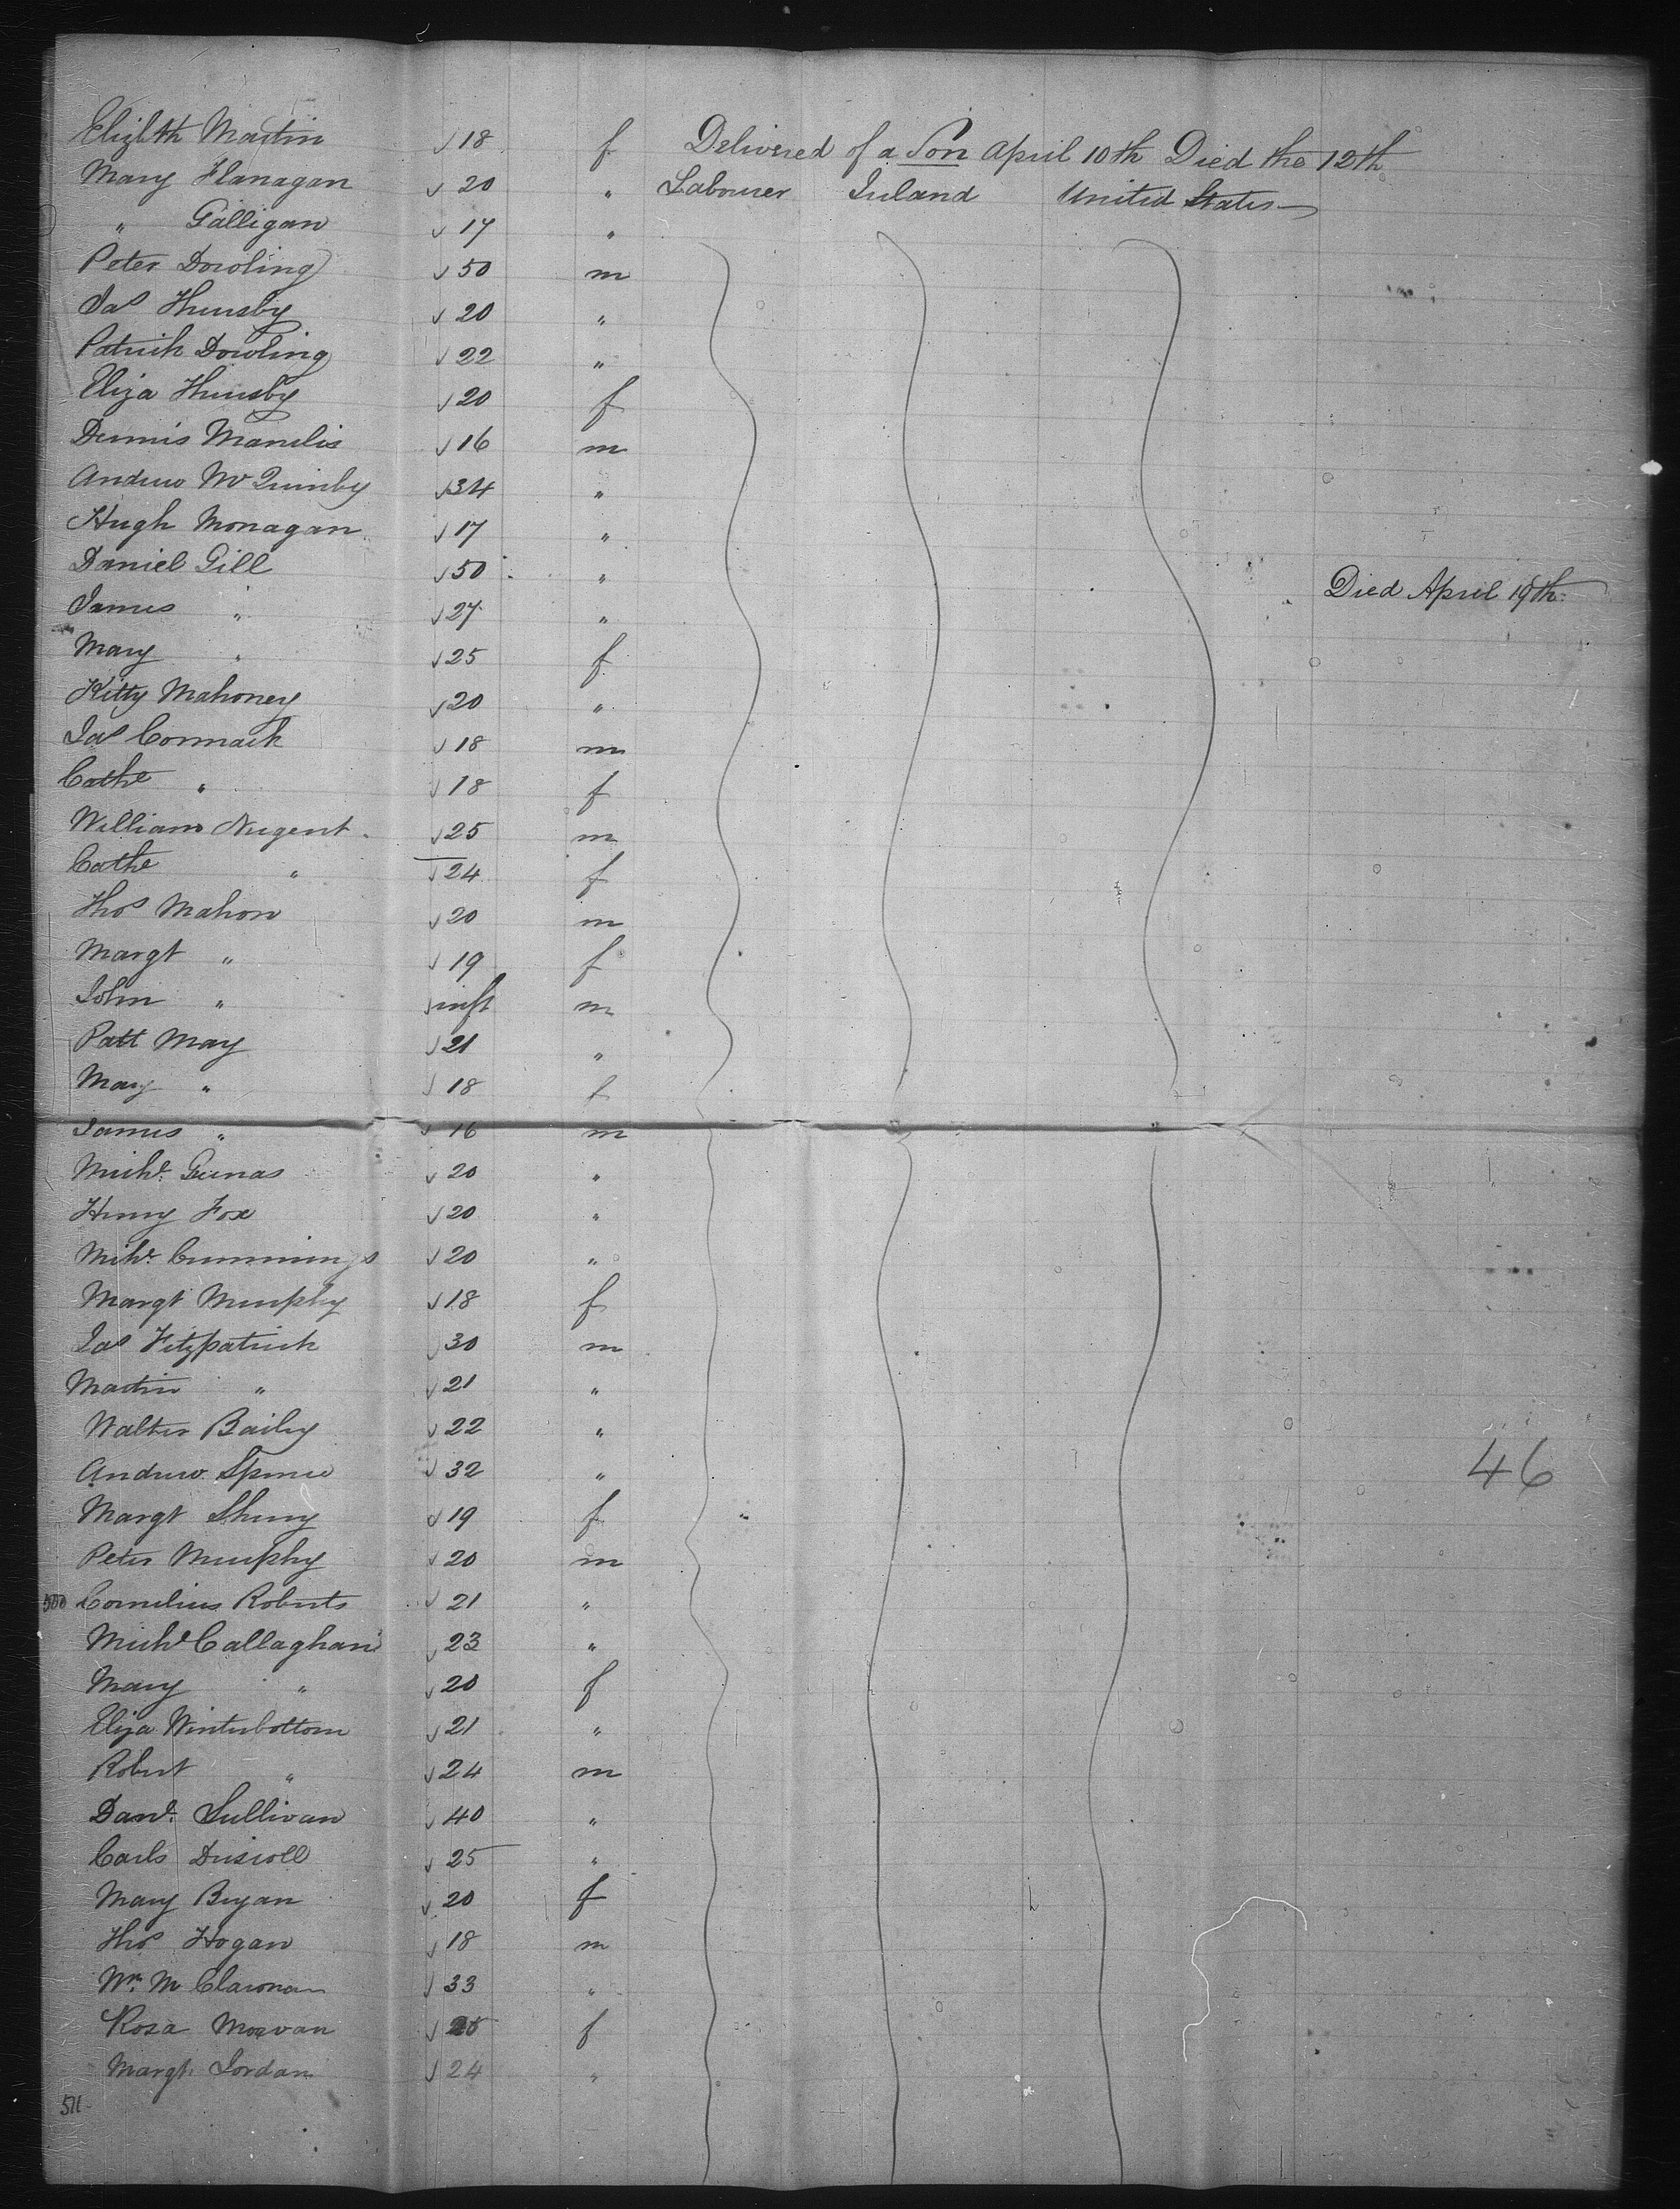 Elizbth Martin 18 f Delivered of a Son April 10th Died the 12th
Mary Flanagan 20 " Labourer Ireland United States
" Galligan 17 "
Peter Dowling 50 m
Jas 20 "
Patrick Dowling 22 "
Eliza 20 f
Dennis 16 m
Andrew Mc Quinby 34 "
Hugh Monagan 17 "
Daniel Gill 50 " Died April 19th
James " 27 "
Mary " 25 f
Kitty Mahoney 20 "
Jas Cormack 18 m
Cathe " 18 f
William Nugent 25 m
Cathe " 24 f
Thos Mahon 20 m
Margt " 19 f
John " inft m
Patt May 21 "
Mary " 18 f
James " 16 m
Michl 20 "
Henry Fox 20 "
Mihl Cummings 20 "
Margt Murphy 18 f
Jas Fitzpatrick 30 m
Martin " 21 "
Walter Baily 22 "
Andrew Spence 32 "
46
Margt 19 f
Peter Murphy 20 m
500 Cornelius Roberts 21 "
Michl Callaghan 23 "
Mary " 20 f
Eliza Winterbottom 21 "
Robert " 24 m
Danl Sullivan 40 "
Carls Driscoll 25 "
Mary Bryan 20 f
Thos Hogan 18 m
Wm 33 "
Rosa f
Margt Jordan 24 "
511